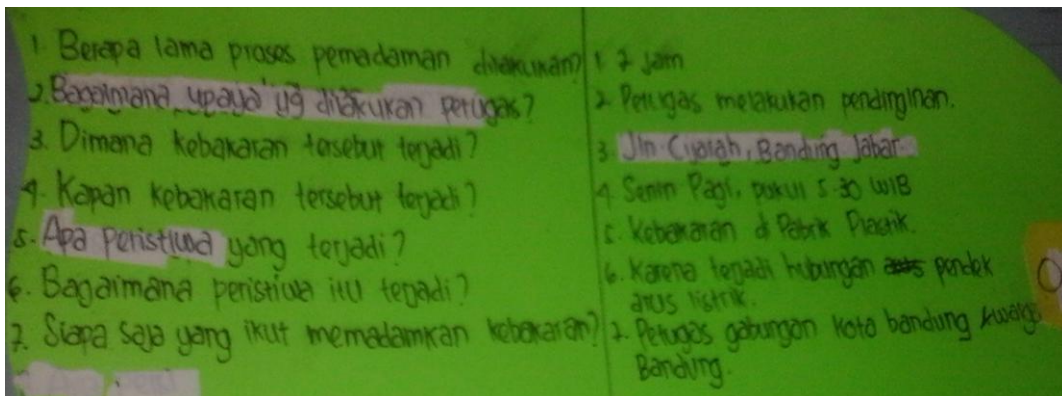 1. Berapa lama proses pemadaman dilakukan?
2. Bagaimana upaya yg dilakukan petugas?
3. Dimana kebakaran tersebut terjadi?
4. Kapan kebakaran tersebut terjadi?
5. Apa peristiwa yang terjadi?
6. Bagaimana peristiwa itu terjadi?
7. Siapa saja yang ikut memadamkan kebakaran?
1. 2 Jam
2. Petugas melakukan pendinginan.
3. Jln. Bandung Jabar.
4. Senin Pagi, pukul 5.30 WIB
5. Kebakaran di Pabrik Plastik.
6. Karena terjadi hubungan pendek
arus listrik.
7. Petugas gabungan Kota bandung
Bandung.